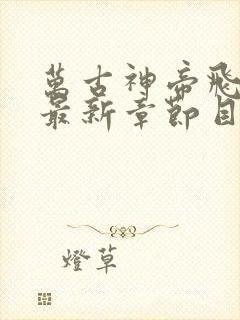 萬古神帝飛
最新章節目
燈草